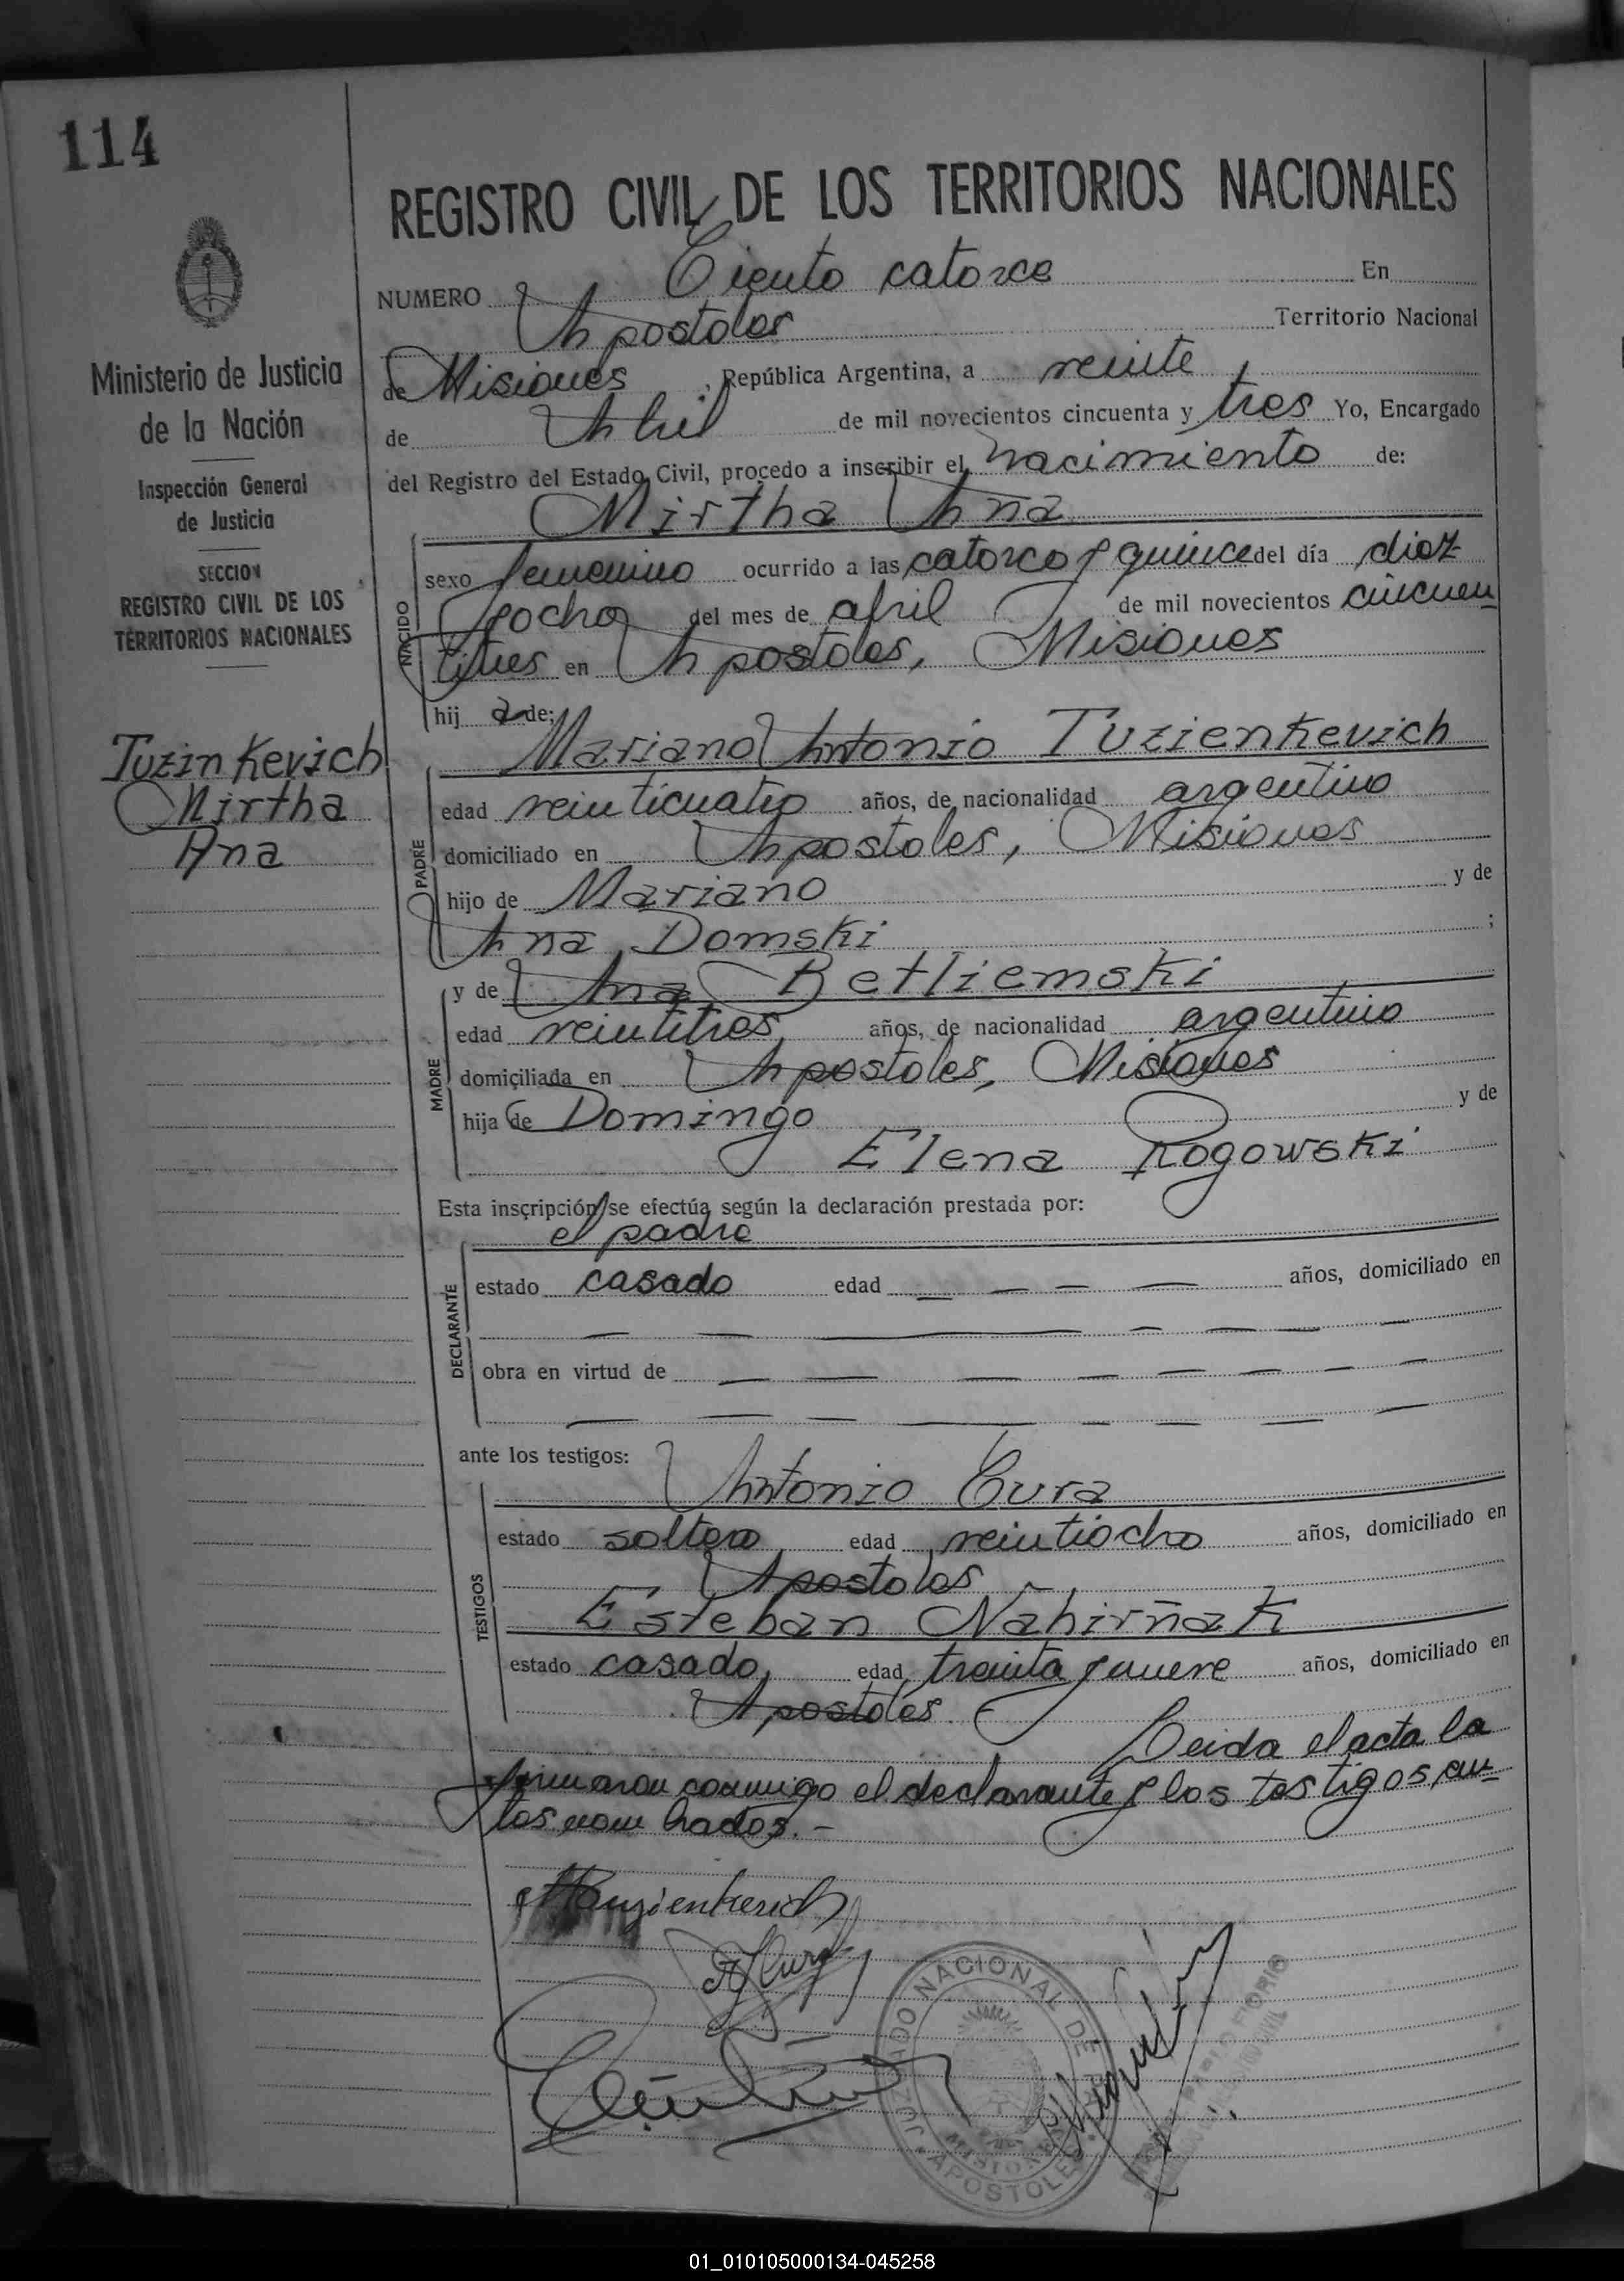 114
REGISTRO CIVIL DE LOS TERRITORIOS NACIONALES
NUMERO Ciento catorce En
Apostoles Territorio Nacional
de Misiones, República Argentina, a veinte
de Abril de mil novecientos cincuenta y tres Yo, Encargado
del Registro del Estado Civil, procedo a inscribir el nacimiento de:
Mirtha Ana
Ministerio de Justicia
de la Nación
Inspección General
de Justicia
SECCION
REGISTRO CIVIL DE LOS
TERRITORIOS NACIONALES
Tuzinkevich
Mirtha
Ana
NACIDO
sexo femenino ocurrido a las catorce y quince del día diez
y ocho del mes de abril de mil novecientos cincuen
titres en Apostoles, Misiones
hij a de:
Mariano Antonio Tuzienkevich
PADRE
edad veinticuatro años, de nacionalidad argentino
domiciliado en Apostoles, Misiones
hijo de Mariano y de
Ana Domski ;
MADRE
y de Ana Betliemski
edad veintitres años, de nacionalidad argentina
domiciliada en Apostoles, Misiones
hija de Domingo y de
Elena Rogowski
Esta inscripción se efectúa según la declaración prestada por:
el padre
DECLARANTE
estado casado edad — — — — años, domiciliado en
obra en virtud de
ante los testigos:
Antonio Cura
TESTIGOS
estado soltero edad veintiocho años, domiciliado en
Apostoles
Esteban Ñahirñak
estado casado edad treinta y nueve años, domiciliado en
Apostoles
Leida el acta la
firmaron conmigo el declarante y los testigos an
tos nombrados.-
JUZGADO NACIONAL DE PAZ
MISIONES
APOSTOLES
01_010105000134-045258